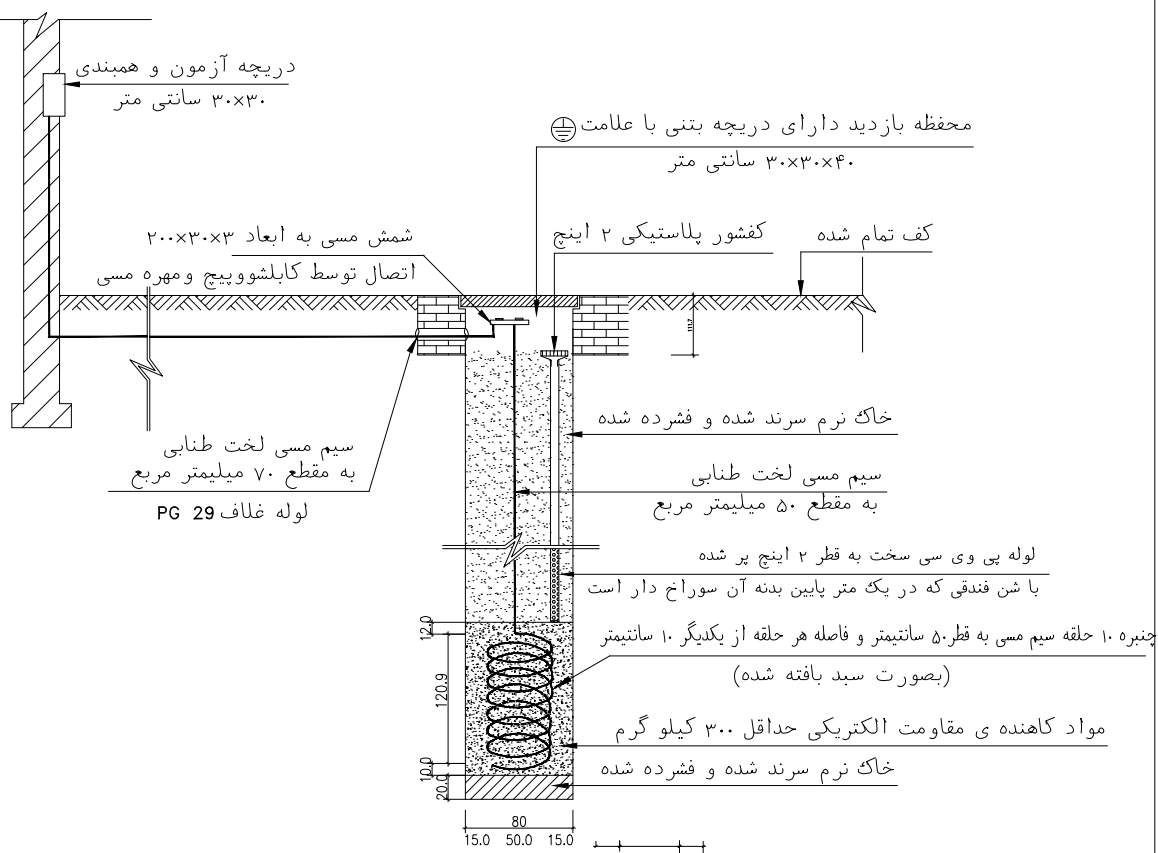 دریچه آزمون و همبندی
۳۰×۳۰ سانتی متر
محفظه بازدید دارای دریچه بتنی با علامت
۳۰×۳۰×۴۰ سانتی متر
شمش مسی به ابعاد ۲۰۰×۳۰×۳
اتصال توسط کابلشووپیچ ومهره مسی
کفشور پلاستیکی ۲ اینچ
کف تمام شده
خاک نرم سرند شده و فشرده شده
سیم مسی لخت طنابی
به مقطع ۷۰ میلیمتر مربع
لوله غلاف PG 29
سیم مسی لخت طنابی
به مقطع ۵۰ میلیمتر مربع
لوله پی وی سی سخت به قطر ۲ اینچ پر شده
با شن فندقی که در یک متر پایین بدنه آن سوراخ دار است
12.0
چنبره ۱۰ حلقه سیم مسی به قطر۵۰ سانتیمتر و فاصله هر حلقه از یکدیگر ۱۰ سانتیمتر
(بصورت سبد بافته شده)
120.9
مواد کاهنده ی مقاومت الکتریکی حداقل ۳۰۰ کیلو گرم
10.0
خاک نرم سرند شده و فشرده شده
20.0
80
15.0 50.0 15.0